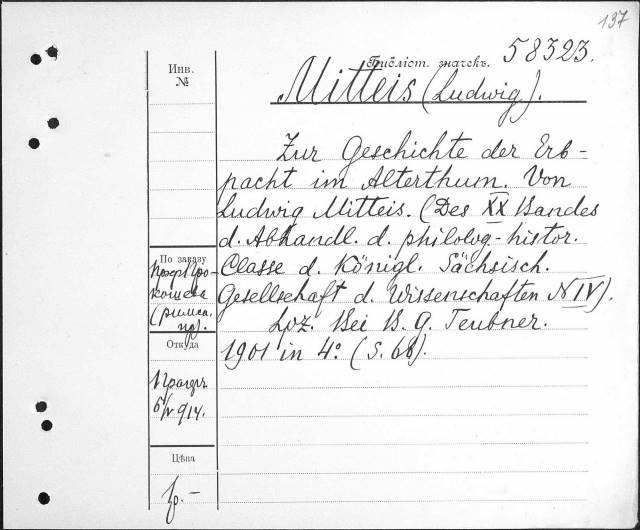 137
Библіот. значекъ. 58323.
Инв.
№
Mitteis (Ludwig).
Zur Geschichte der Erb-
pacht im Alterthum. Von
Ludwig Mitteis. (Des XX Bandes
d. Abhandl. d. philolog-histor.
Classe d. Königl. Sächsisch.
Gesellschaft d. Wissenschaften N IV).
Lpz. Bei B. G. Teubner.
1901 in 4º. (S. 66).
По заказу
Проф. Про-
кошева
Откуда
914.
Цѣна